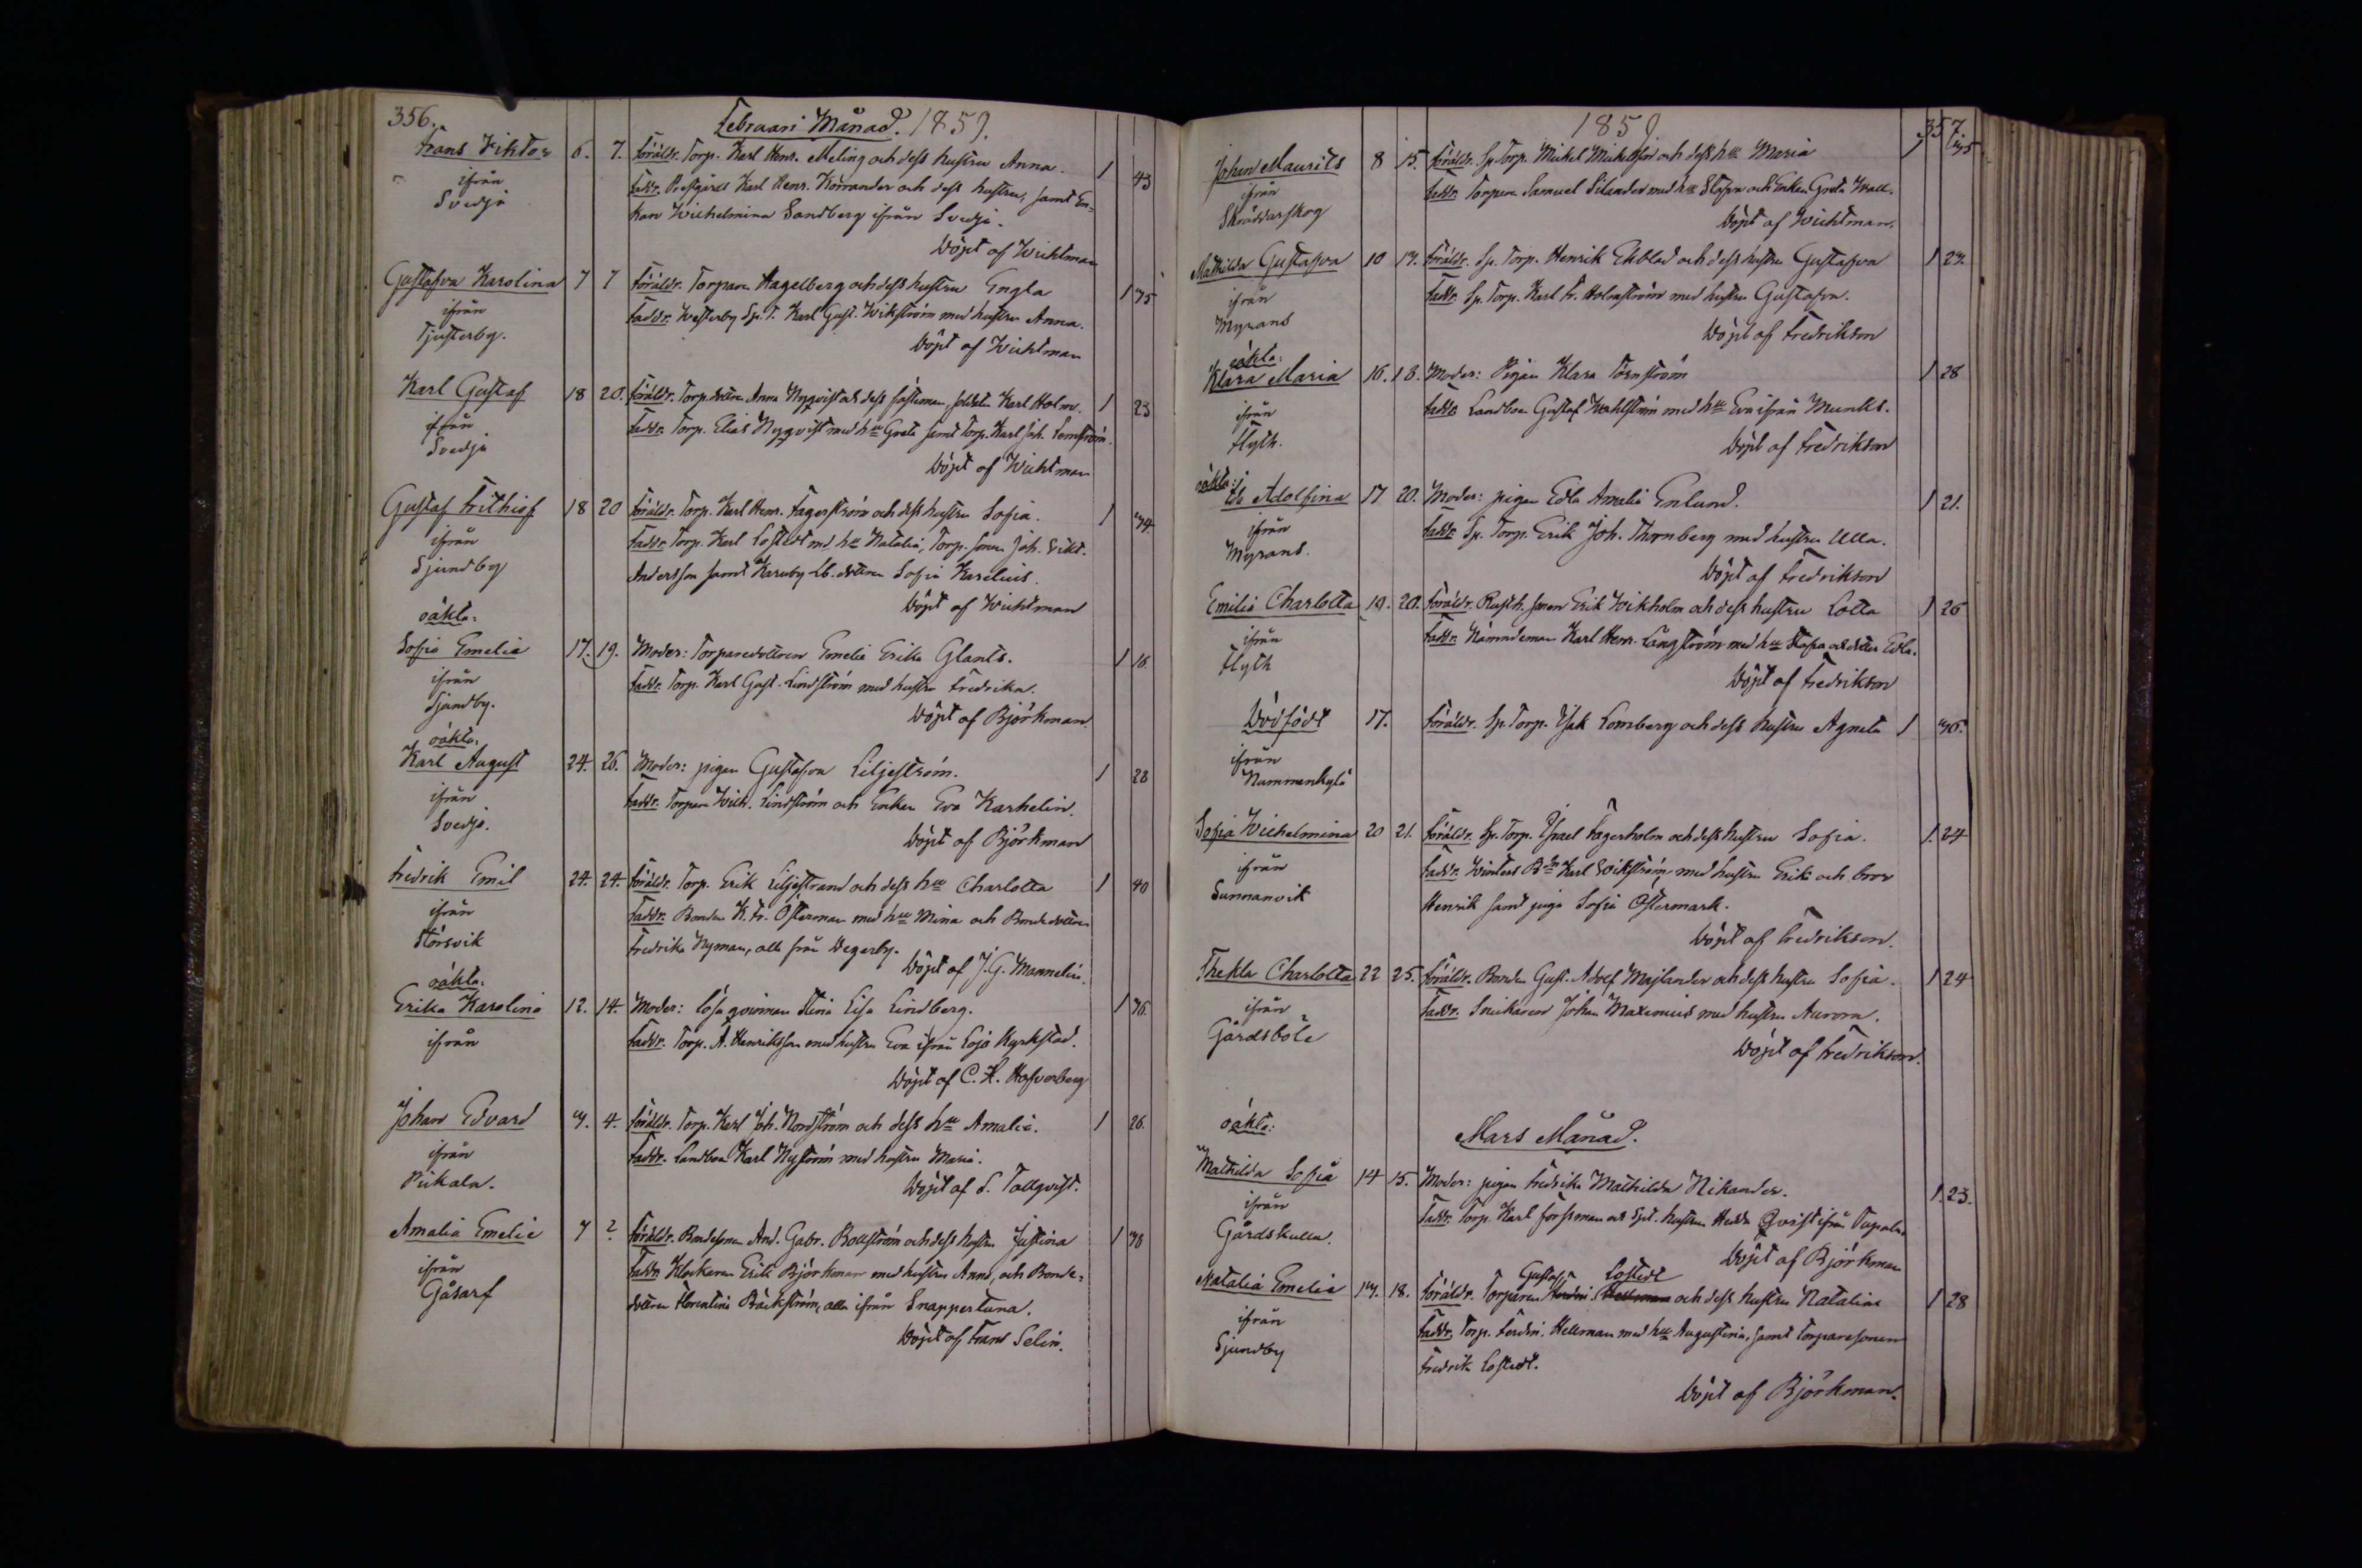 356.
Februari Månad. 1859.
Frans Viktor 6. 7. Föräldr. Torp. Karl Henr. Meling och dess hustru Anna. 1 43
ifrån Faddr. Karl Henr. och dess hustru, samt En-
Svedja kan Wilhelmina Sandberg ifrån Svedja.
Döpt af Wichtman
Gustafva Karolina 7 7 Föräldr. Torparen Hagelberg och dess hustru Engla 1 35
ifrån Faddr. Westerby Sp. T. Karl Gust. Wikström med hustru Anna.
Tjusterby. Döpt af Wichtman
Karl Gustaf 18 20. Föräldr. Torp.dottren Anna Nyqvist och dess fästeman, soldaten Karl Holm. 1 23
ifrån Faddr. Torp. Elias Nyqvist med hu Greta samt Torp. Karl Joh.
Svedja Döpt af Wichtman
Gustaf Frithiof 18 20 Föräldr. Torp. Karl Henr. Fagerström och dess hustru Sofia. 1 34
ifrån Faddr. Torp. Karl Lostedt md hu Natalia, Torp. sonen Joh. Vikt.
Sjundby Andersson samt Karuby Lb. dottren Sofia Karelius.
Döpt af Wichtman
oäkta:
Sofia Emelie 17. 19. Moder: Torparedottren Emelie Erika Glants. 1 16
ifrån Faddr. Torp. Karl Gust. Lindström med hustru Fredrika.
Sjundby. Döpt af Björkman
oäkta.
Karl August 24. 26. Moder: pigan Gustafva Liljeström. 1 28
ifrån Faddr. Torparen Wilh. Lindström och Enkan Eva Karhelin.
Svedja. Döpt af Björkman
Fredrik Emil 24. 24. Föräldr. Torp. Erik Liljestrand och dess hu Charlotta 1 40
ifrån Faddr. Bonden K. Fr. Österman med hu Mina och Bondedottren
Störsvik Fredrika Nyman, alla från Degerby.
Döpt af J. G. Mannelin.
oäkta:
Erika Karolina 12. 14. Moder: lösa qvinnan Stina Lisa Lindberg. 1 36.
ifrån Faddr. Torp. A. Henriksson med hustru Eva ifrån Lojo Kyrkstad.
Döpt af C. H. Hofverberg
Johan Edvard 3. 4. Föräldr. Torp. Karl Joh. Nordström och dess hu Amalia. 1 26.
ifrån Faddr. Landbon Karl Nyström med hustru Maria.
Pickala. Döpt af L. Tallqvist.
Amalia Emelie 7 ? Föräldr. Bondesonen And. Gabr. Bollström och dess hustru Justina 1 38
ifrån Faddr. Klockaren Erik Björkman med hustru Anna, och Bonde-
Gåsarf dottren Florentina Bäckström, alla ifrån Snappertuna.
Döpt af Frans Selin.
1859 357.
Johan Maurits 8 15. Föräldr. Sp. Torp. Mickel Mickelsson och dess hu Maria 1 35
ifrån Faddr. Torparen Samuel Silander med hu Stafva och Enkan Greta Wall.
Skräddarskog Döpt af Wichtman.
Mathilda Gustafva 10 13. Föräldr. Sp. Torp. Henrik Ekblad och dess hustru Gustafva 1 23.
ifrån Faddr. Sp. Torp. Karl Fr. Holmström med hustru Gustafva.
Myrans Döpt af Fredrikson
oäkta:
Klara Maria 16. 18. Moder: Pigan Klara Törnström 1 28
ifrån Faddr. Landbon Gustaf Wahlström med hu Eva ifrån Munks.
Flyth. Döpt af Fredrikson
oäkta:
Ida Adolfina 17 20. Moder: pigan Edla Amalia Enlund. 1 21.
ifrån Faddr. Sp. Torp. Erik Joh. Thornberg med hustru Ulla.
Myrans. Döpt af Fredrikson
Emilia Charlotta 19. 20. Föräldr. Rusth. sonen Erik Wikholm och dess hustru Lotta 1 26
ifrån Faddr. Nämndeman Karl Henr. Långström med hu Stafva och dotter Edla.
Flyth Döpt af Fredrikson
Dödfödt 17. Föräldr. Sp. Torp. Isak Lemberg och dess hustru Agneta 1 36.
ifrån
Nummenkylä
Sofia Wilhelmina 20 21. Föräldr. Sp. Torp. Israel Fagerholm och dess hustru Sofia. 1. 24
ifrån Faddr. Winters Karl Wikström med hustru Erika och bror
Sunnanvik Henrik samt piga Sofia Östermark.
Döpt af Fredrikson.
Thekla Charlotta 22 25. Föräldr. Bonden Gust. Adolf Majlander och dess hustru Sofia. 1 24
ifrån Faddr. Snickaren Johan Maxenius med hustru Aurora.
Gårdsböle Döpt af Fredrikson.
Mars Månad.
oäkta:
Mathilda Sofia 14 15. Moder: pigan Fredrika Mathilda Nikander. 1. 23.
ifrån Faddr. Torp. Karl Forssman och Sjel. hustrun Hedda Qvist ifrån
Gårdskulla. Döpt af Björkman
Gustaf Lostedt
Natalia Emelie 17. 18. Föräldr. Torparen Ferdin. Hellman och dess hustru Natalia 1 28
ifrån Faddr. Torp. Ferdin. Hellman med hu Augustina, samt Torparesonen
Sjundby Fredrik Lostedt.
Döpt af Björkman.